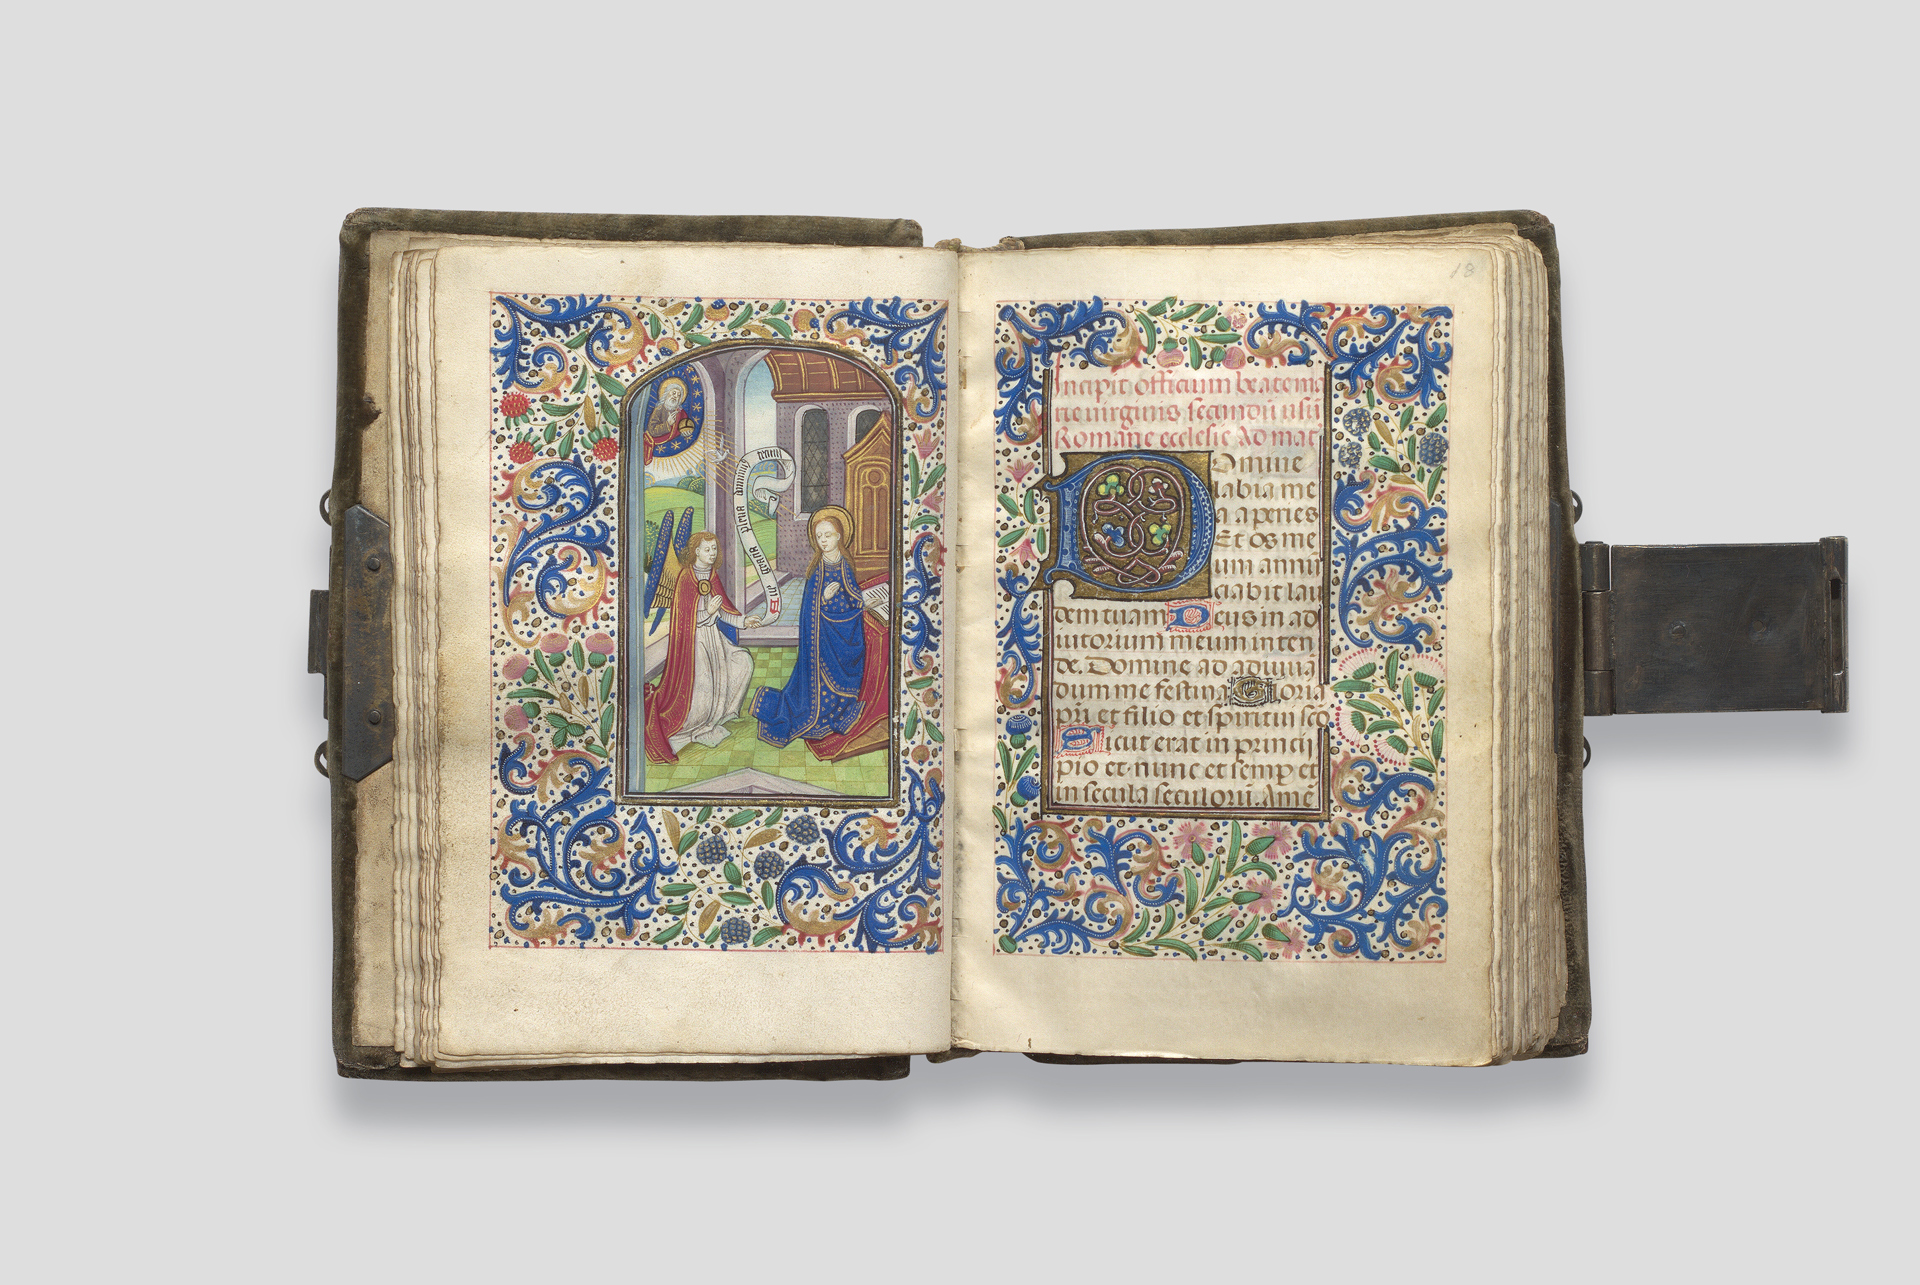 Aue gratia plena dominus tecum
18
Incipit officium beate ma
rie virginis secundū usū
Romane ecclesie Ad mat
Domine
labia me
a aperies
Et os me
um annū
ciabit lau
dem tuam Deus in ad
iutorium meum inten
de. Domine ad adiuuā
dum me festina Gloria
pri et filio et spiritui sco
Sicut erat in princi
pio et nunc et semp et
in secula seculorū. Amē